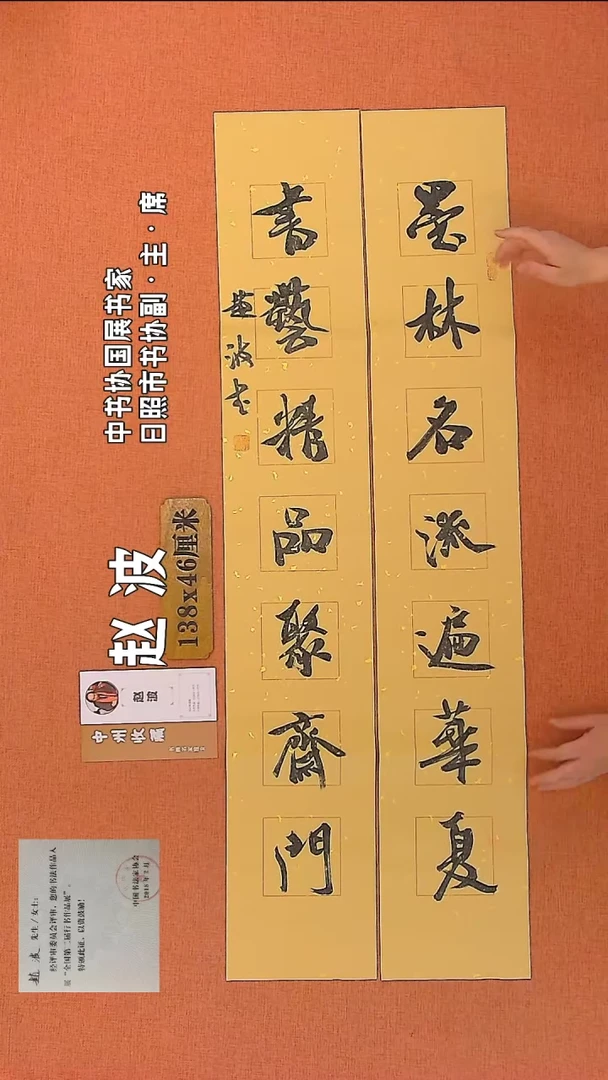 墨林名流遍華夏
書藝精品聚齋門
趙波書
中书协国展书家
日照市书协副·主·席
赵波
138x46厘米
赵波
中州收藏
趙波 先生/女士:
经评审委员会评审,您的书法作品入
展“全国第二届行书作品展”。
特颁此证,以资鼓励!
中国书法家协会